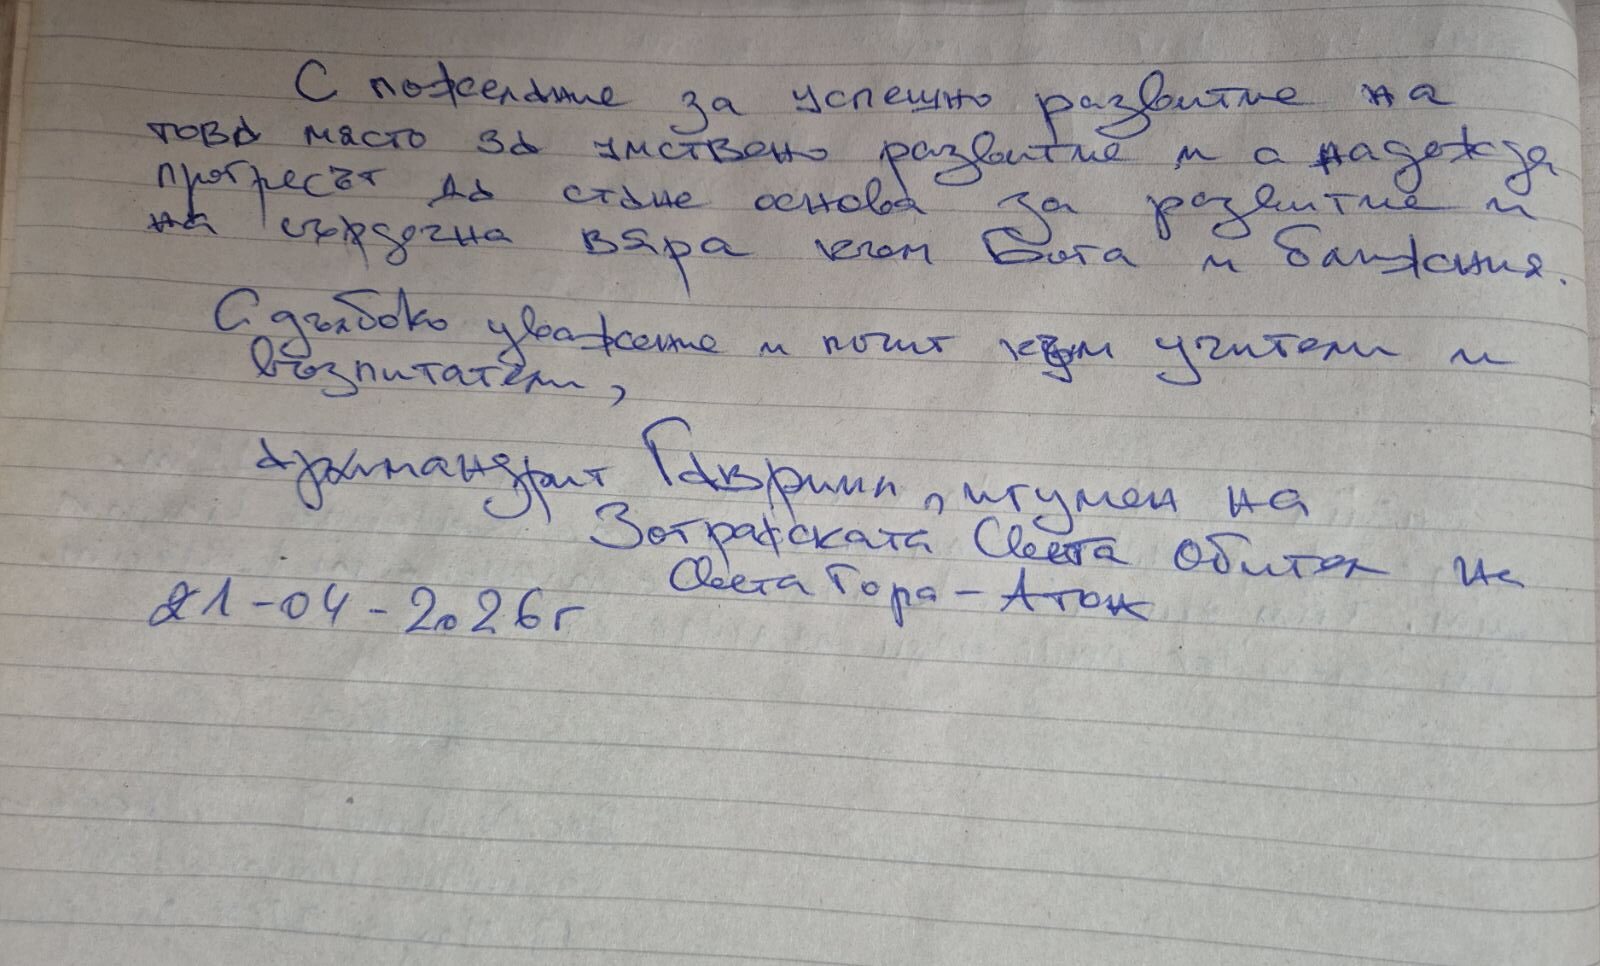 С пожелание за успешно развитие на
това място за умствено развитие и с надежда
прогресът да стане основа за развитие и
на сърдечна вяра към Бога и ближния.
С дълбоко уважение и почит към учители и
възпитатели,
архимандрит Гавриил, игумен на
Зографската Света Обител на
Света Гора - Атон
21-04-2026 г